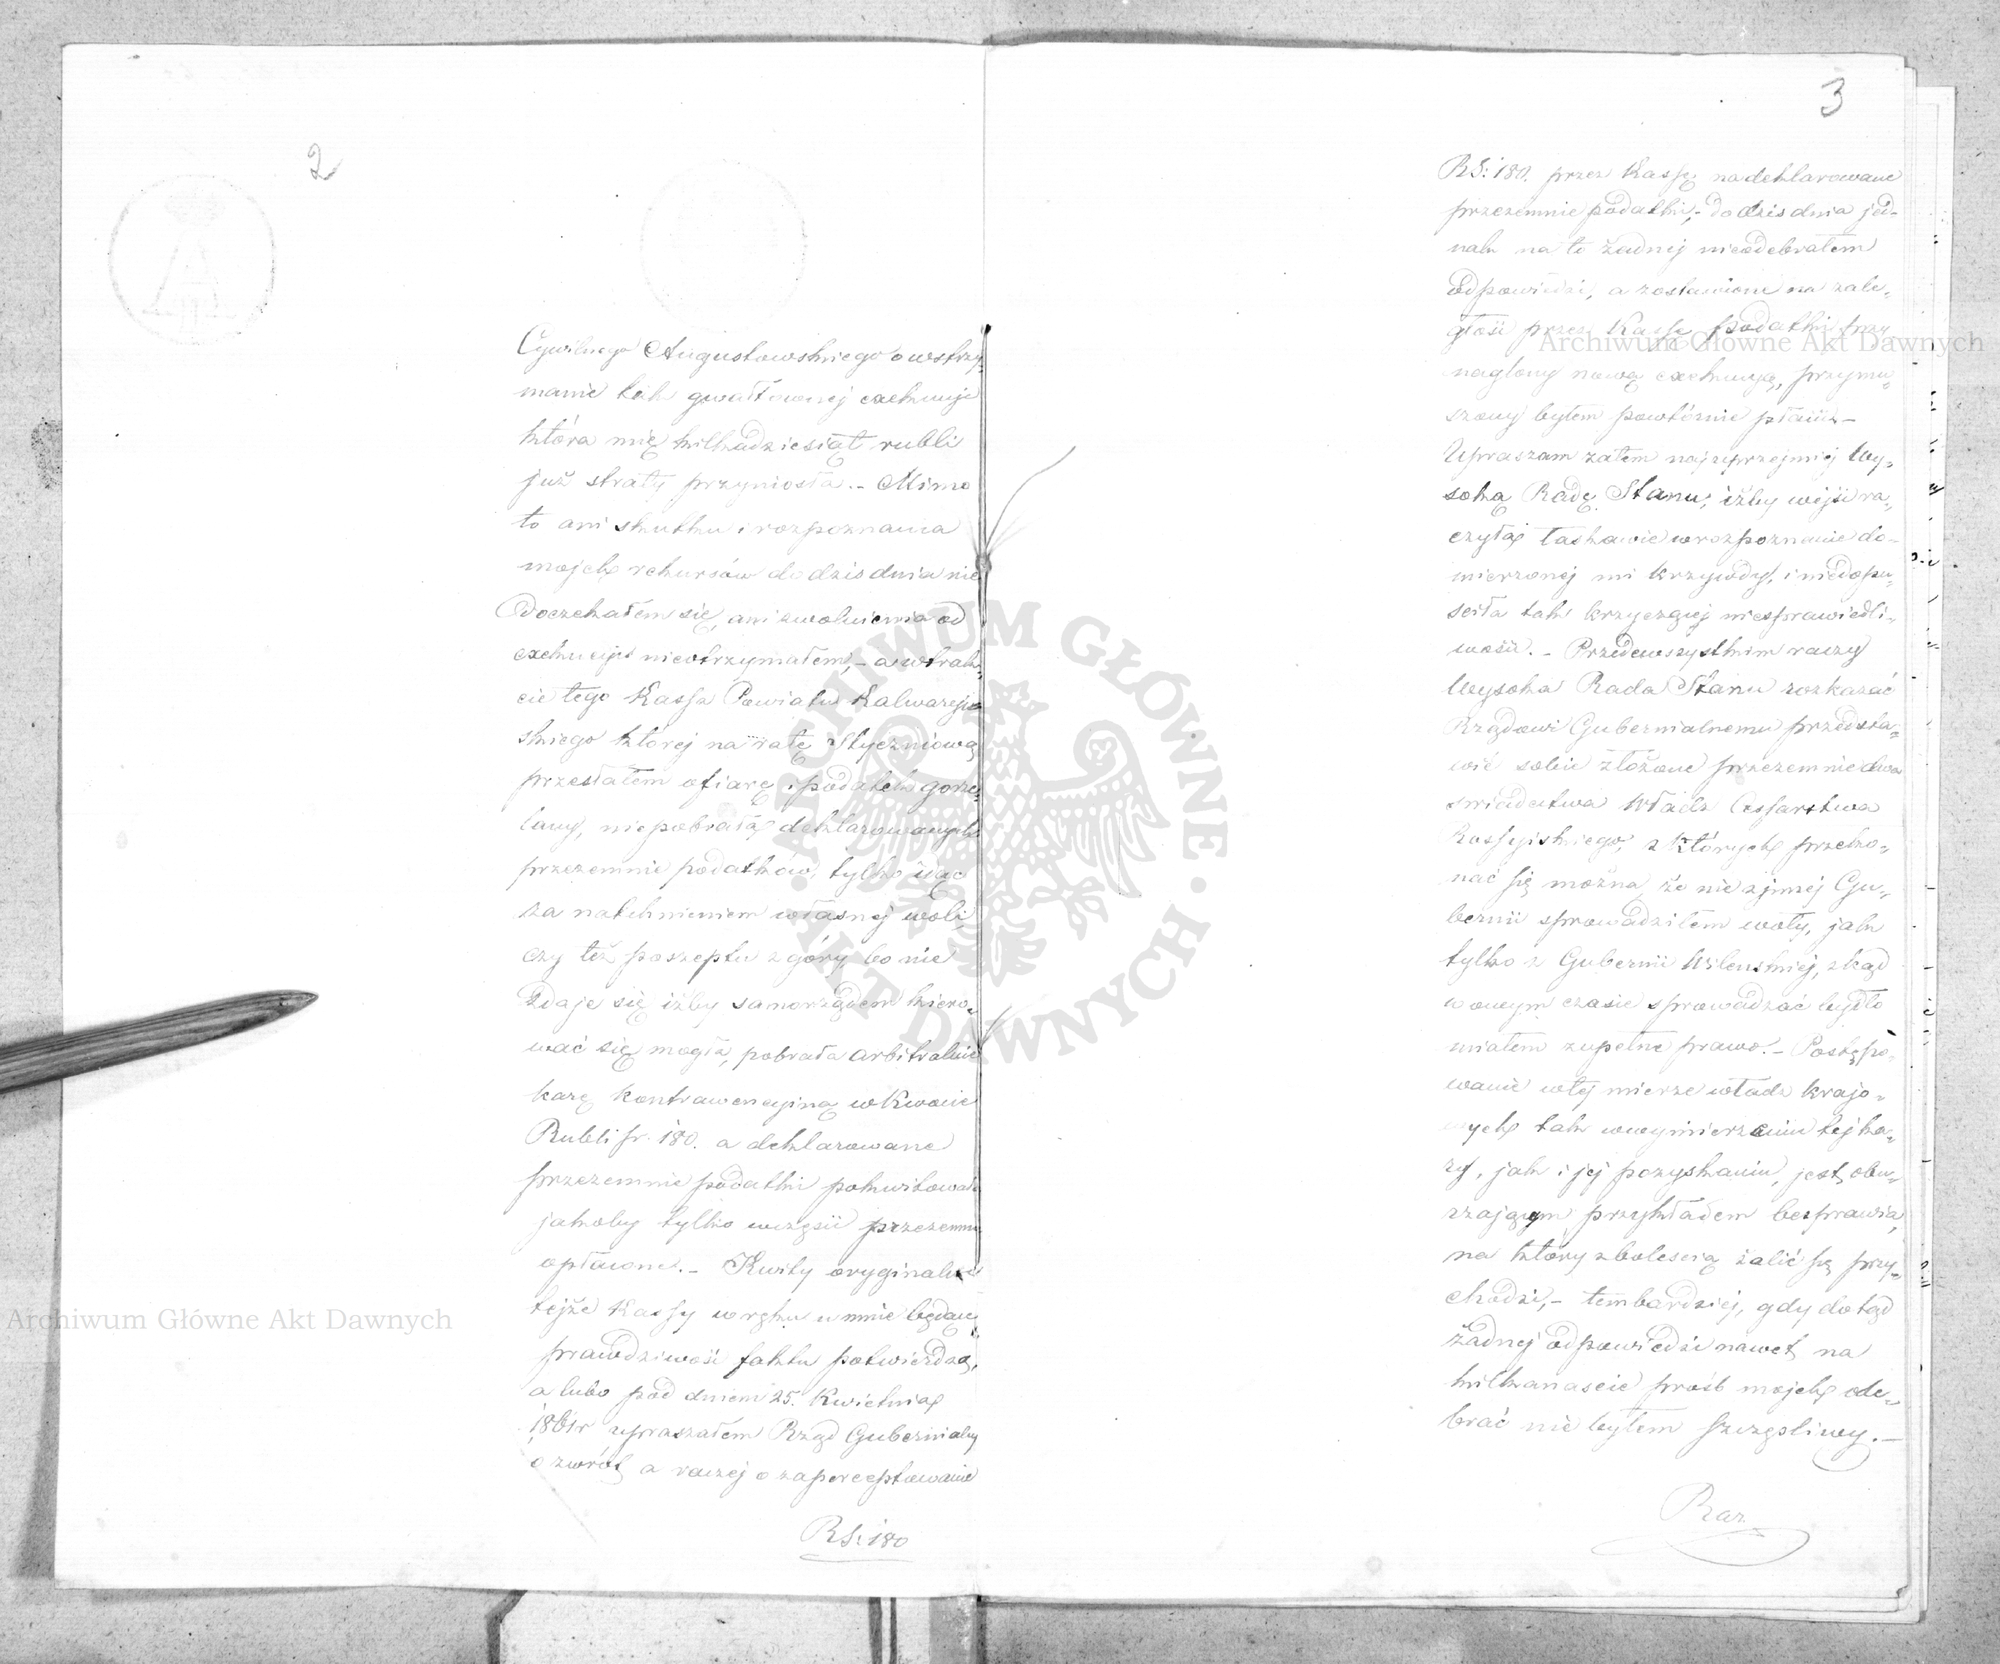 2
Cywilnego Augustowskiego o wstrzy-
manie tak gwałtownej exekucyi
która mię kilkadziesiąt rubli
już straty przyniosła. – Mimo
to ani skutku i rozpoznania
mojch rekursów do dziś dnia nie
doczekałem się, ani zwolnienia od
exekucyi nieotrzymałem, – a w trak-
cie tego Kassa Powiatu Kalwaryj-
skiego której na ratę Styczniową
przesłałem ofiarę i podatek gorze-
lany, niepobrała deklarowanych
przezemnie podatków, tylko idąc
za natchnieniem własnej woli,
czy też poszeptu z góry, bo nie
zdaje się iżby samorządem kiero-
wać się mogła, pobrała arbitralnie
karę kontrawencyjną w kwocie
Rubli sr. 180. a deklarowane
przezemnie podatki pokwitowała
jakoby tylko w części przezemnie
opłacone. – Kwity oryginalne
tejże Kassy w ręku u mnie będące
prawdziwość faktu potwierdzą,
a lubo pod dniem 25. Kwietnia
1861 r upraszałem Rząd Gubernialny
o zwrót a raczej o zaperceptowanie
RS: 180
3
RS: 180. przez Kassę na deklarowane
przezemnie podatki, – do dziś dnia jed-
nak na to żadnej nieodebrałem
odpowiedzi, a zostawione na zale-
głości przez Kassę podatki przy-
naglony nową exekucyą, przymu-
szony byłem powtórnie płacić –
Upraszam zatem najuprzejmiej Wy-
soką Radę Stanu, iżby wejść ra-
czyła łaskawie w rozpoznanie do-
mierzonej mi krzywdy, i niedopu-
ściła tak krzyczącej niesprawiedli-
wości. – Przedewszystkim raczy
Wysoka Rada Stanu rozkazać
Rządowi Gubernialnemu przedsta-
wić sobie złożone przezemnie dwa
świadectwa Władz Cesarstwa
Rossyjskiego, z których przeko-
nać się można że nie z innej Gu-
bernii sprowadziłem woły, jak
tylko z Gubernii Wileńskiej, zkąd
w owym czasie sprowadzać bydło
miałem zupełne prawo. – Postępo-
wanie w tej mierze władz krajo-
wych tak w wymierzeniu tej ka-
ry, jak i jej pozyskaniu, jest obu-
rzającym przykładem bezprawia,
na który z boleścią żalić się przy-
chodzi, – tembardziej, gdy dotąd
żadnej odpowiedzi nawet na
kilkanaście próśb mojch ode-
brać nie byłem szczęśliwy. –
Raz
Archiwum Główne Akt Dawnych
Archiwum Główne Akt Dawnych
ARCHIWUM GŁÓWNE AKT DAWNYCH